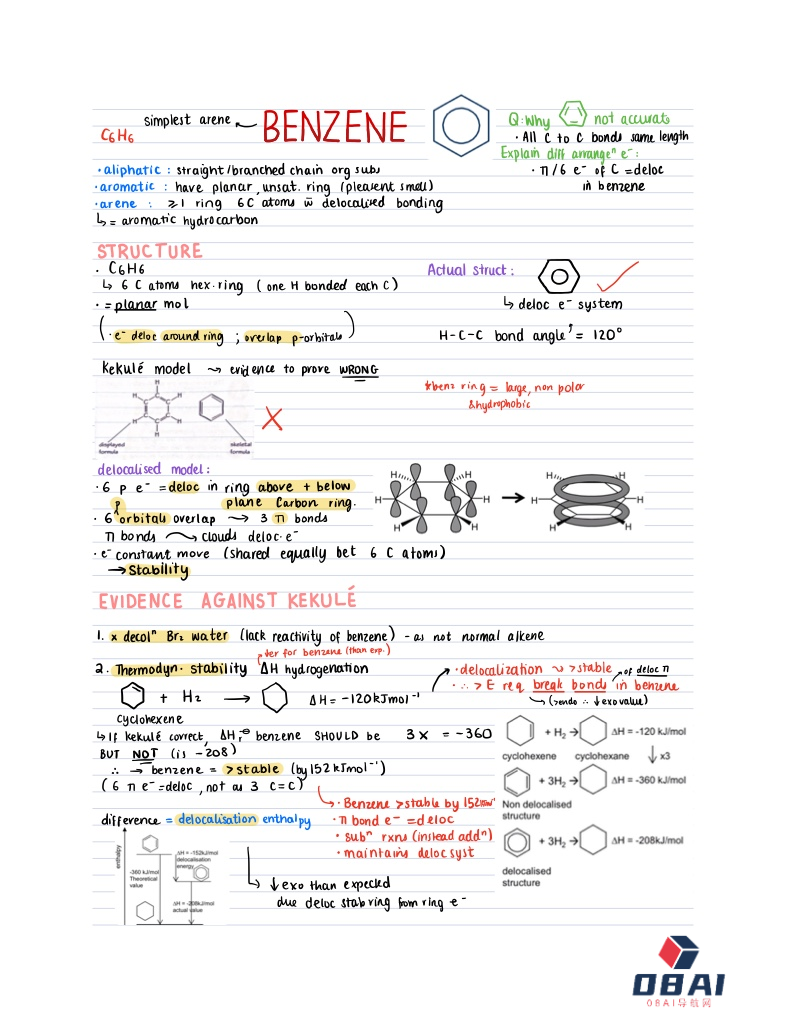 simplest arene
BENZENE
C6H6
Q: Why not accurate
· All C to C bonds same length
Explain diff arrangeⁿ e⁻:
· π / 6 e⁻ of C = deloc
in benzene
· aliphatic : straight/branched chain org subs
· aromatic : have planar, unsat. ring (pleasent smell)
· arene : ≥1 ring 6C atoms w̄ delocalised bonding
↳ = aromatic hydrocarbon
STRUCTURE
· C6H6
↳ 6 C atoms hex. ring ( one H bonded each C )
· = planar mol
( · e⁻ deloc around ring ; overlap p-orbitals )
Actual struct :
↳ deloc e⁻ system
H-C-C bond angle = 120°
Kekulé model ⇝ evidence to prove WRONG
*benz ring = large, non polar
& hydrophobic
displayed
formula
skeletal
formula
delocalised model:
· 6 p e⁻ = deloc in ring above + below
plane Carbon ring.
· 6 p orbitals overlap → 3 π bonds
π bonds → clouds deloc. e⁻
· e⁻ constant move (shared equally bet 6 C atoms)
→ Stability
EVIDENCE AGAINST KEKULÉ
1. x decolⁿ Br₂ water (lack reactivity of benzene) - as not normal alkene
↓er for benzene (than exp.)
2. Thermodyn. stability ΔH hydrogenation
+ H₂ → ΔH = -120kJmol⁻¹
cyclohexene
· delocalization ⇝ >stable of deloc π
· ∴ > E req break bonds in benzene
↪ (>endo ∴ ↓ exo value)
↳ If kekulé correct, ΔHr⦵ benzene SHOULD be 3 x = -360
BUT NOT (is -208)
∴ → benzene = >stable (by 152 kJmol⁻¹)
( 6 π e⁻ = deloc, not as 3 C=C )
· Benzene >stable by 152 kJmol⁻¹
· π bond e⁻ = deloc
· subⁿ rxns (instead addⁿ)
· maintains deloc syst
difference = delocalisation enthalpy
enthalpy
-360 kJ/mol
Theoretical
value
ΔH = -152kJ/mol
delocalisation
energy
ΔH = -208kJ/mol
actual value
↳ ↓ exo than expected
due deloc stab ring from ring e⁻
+ H₂ → ΔH = -120 kJ/mol
cyclohexene cyclohexane x3
+ 3H₂ → ΔH = -360 kJ/mol
Non delocalised
structure
+ 3H₂ → ΔH = -208kJ/mol
delocalised
structure
08AI
08AI导航网